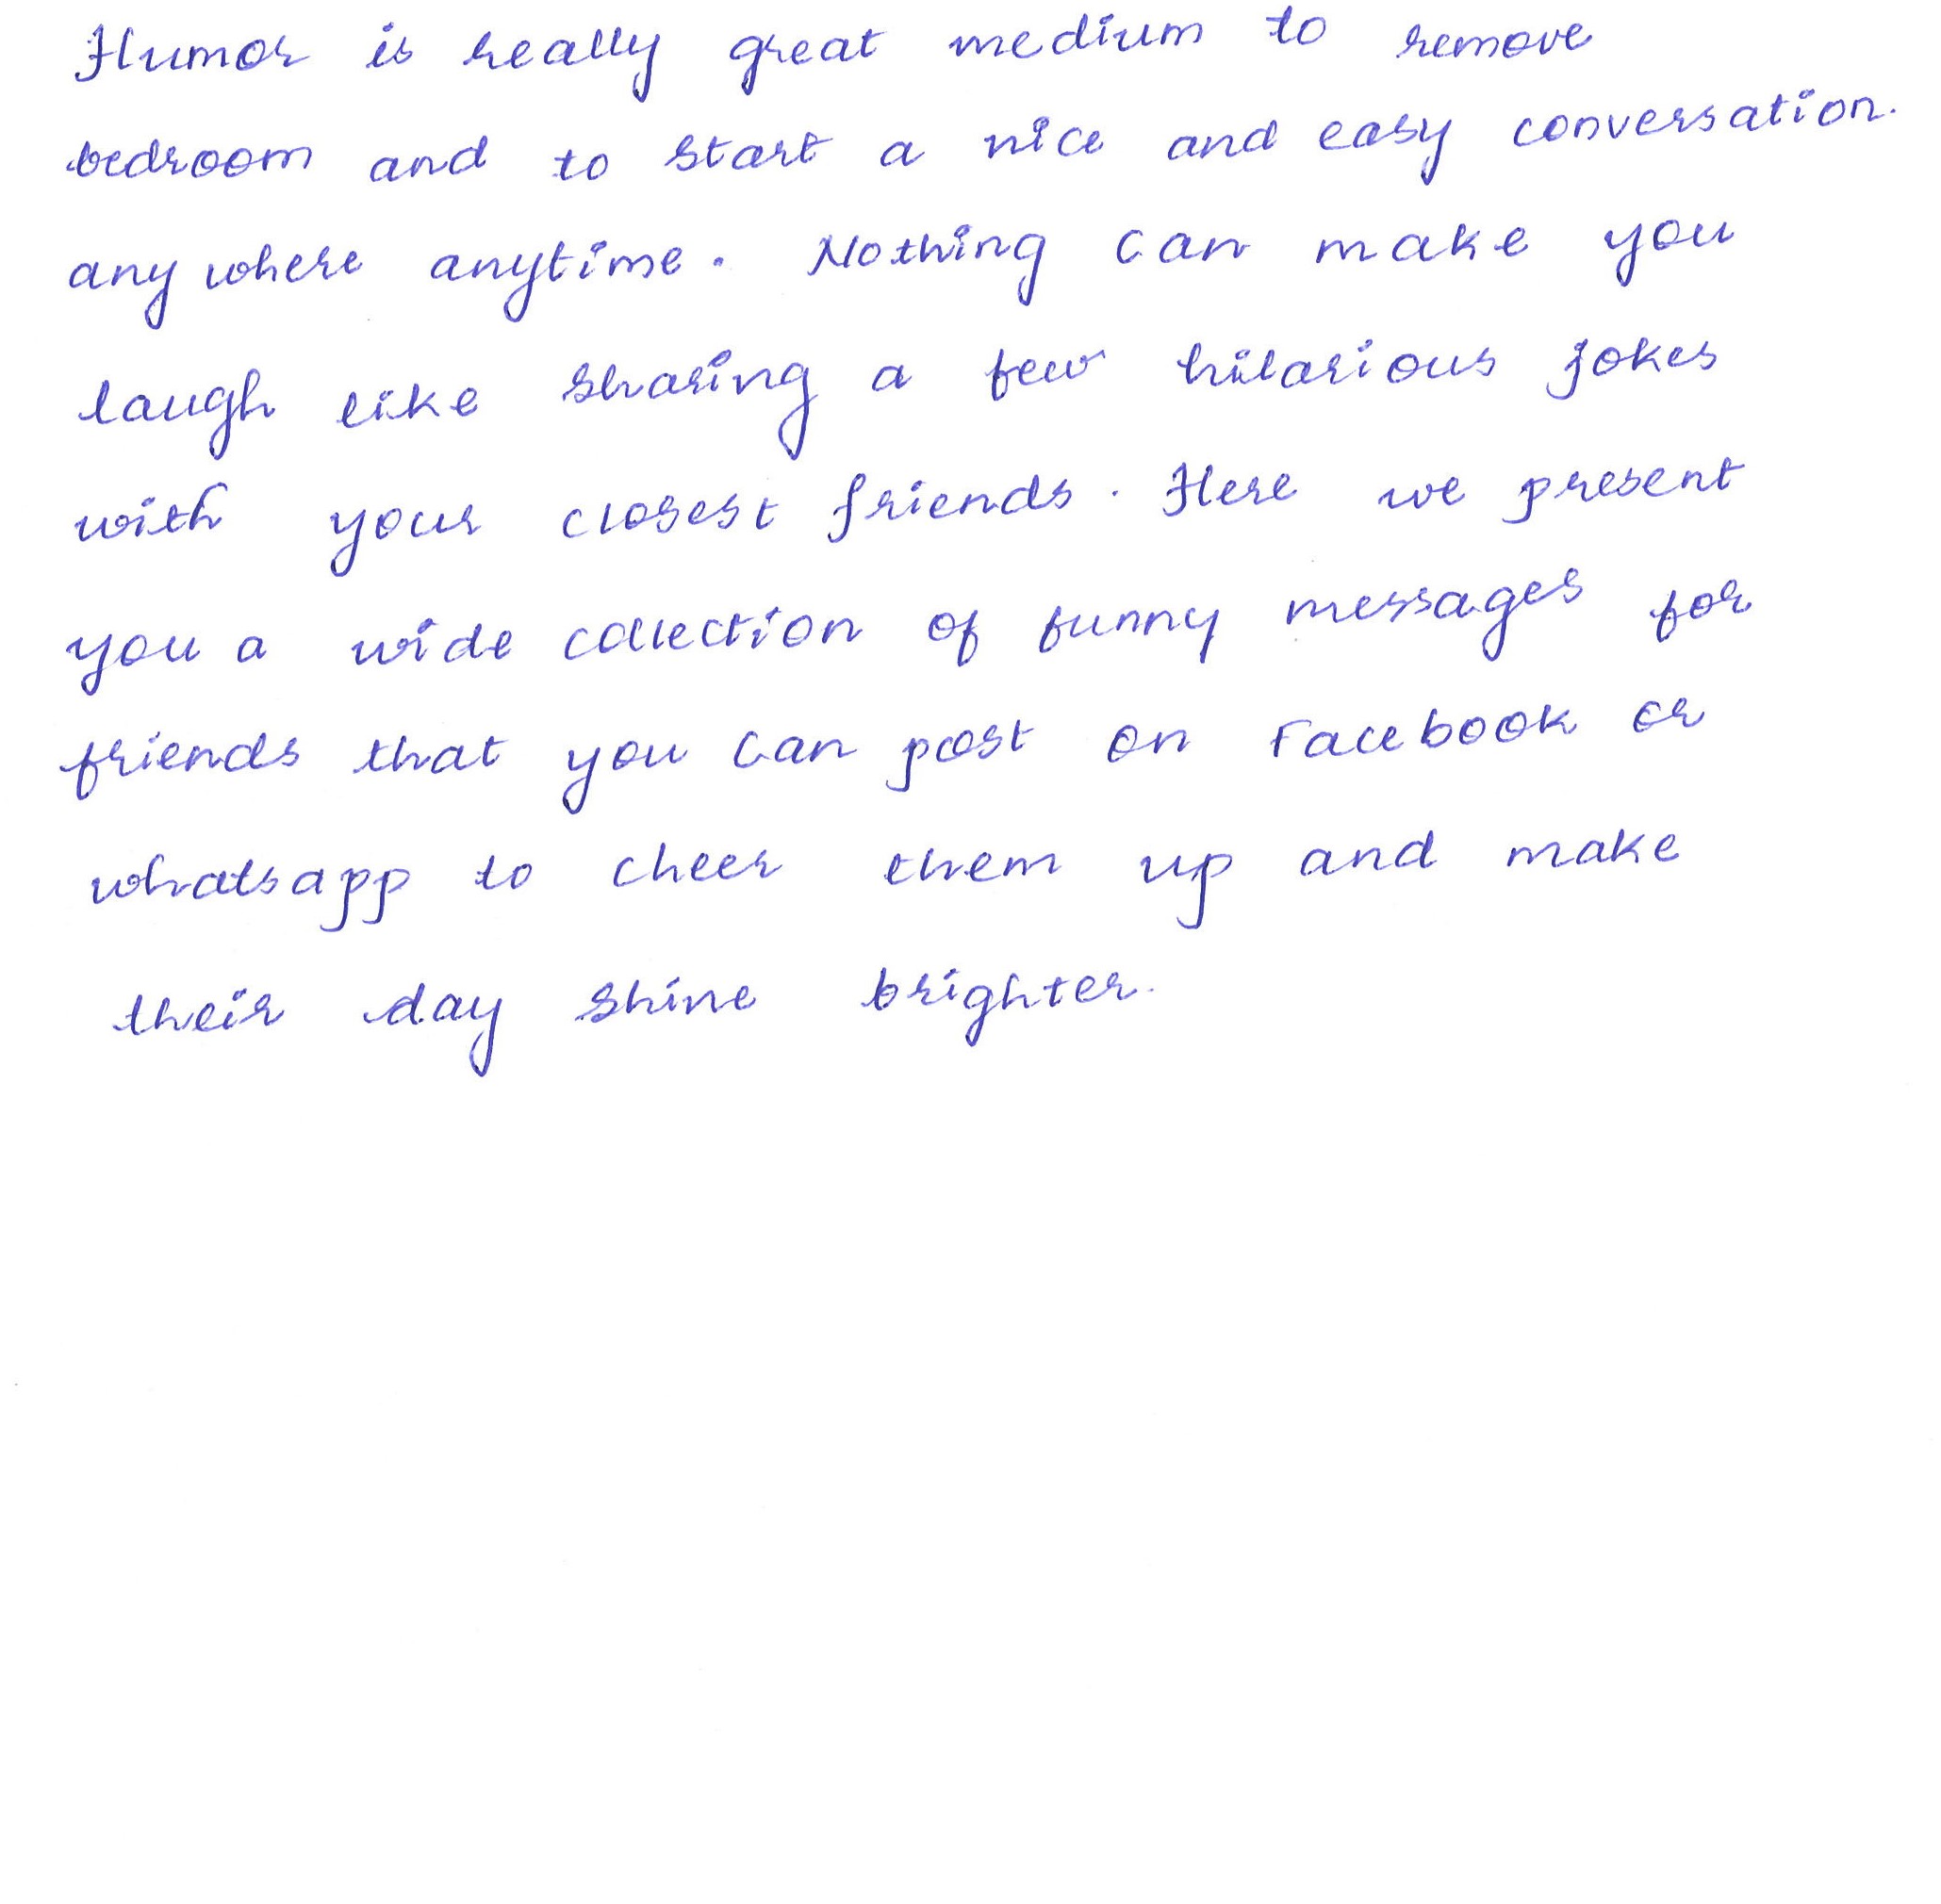 Humor is really great medium to remove
bedroom and to start a nice and easy conversation.
anywhere anytime. Nothing can make you
laugh like sharing a few hilarious jokes
with your closest friends. Here we present
you a wide collection of funny messages for
friends that you can post on Facebook or
whatsapp to cheer them up and make
their day shine brighter.